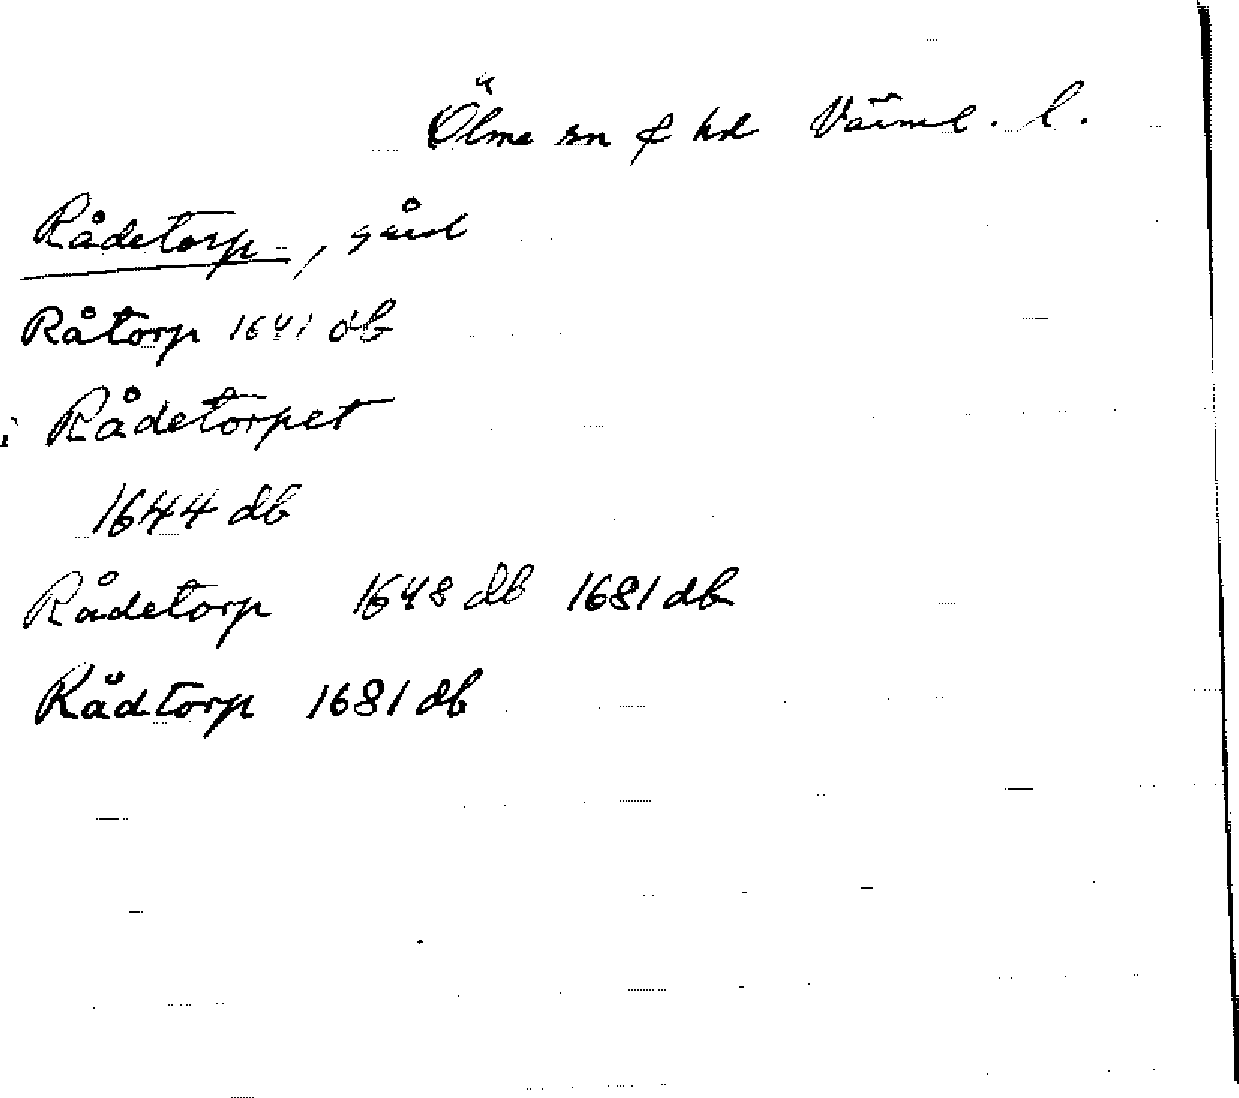 Ölme sn & hd Värml. l.
Rådetorp, gård
Råtorp 1641 db
i Rådetorpet
1644 db
Rådetorp 1648 db 1681 db
Rådtorp 1681 db